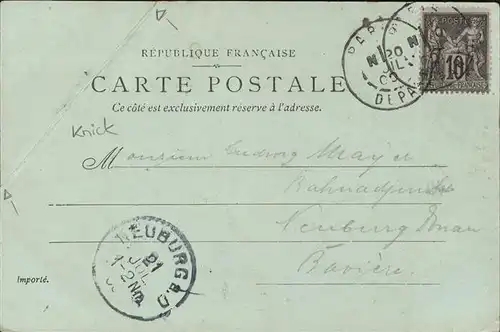 RÉPUBLIQUE FRANÇAISE
CARTE POSTALE
Ce côté est exclusivement réservé à l'adresse.
PARIS DÉPART
20 JUIL
POSTE
10
Knick
Monsieur Ludwig Mayer
Bahnadjunkt
Neuburg Donau
Bavière.
NEUBURG a.D.
21 JUL
1-2 N
Importé.